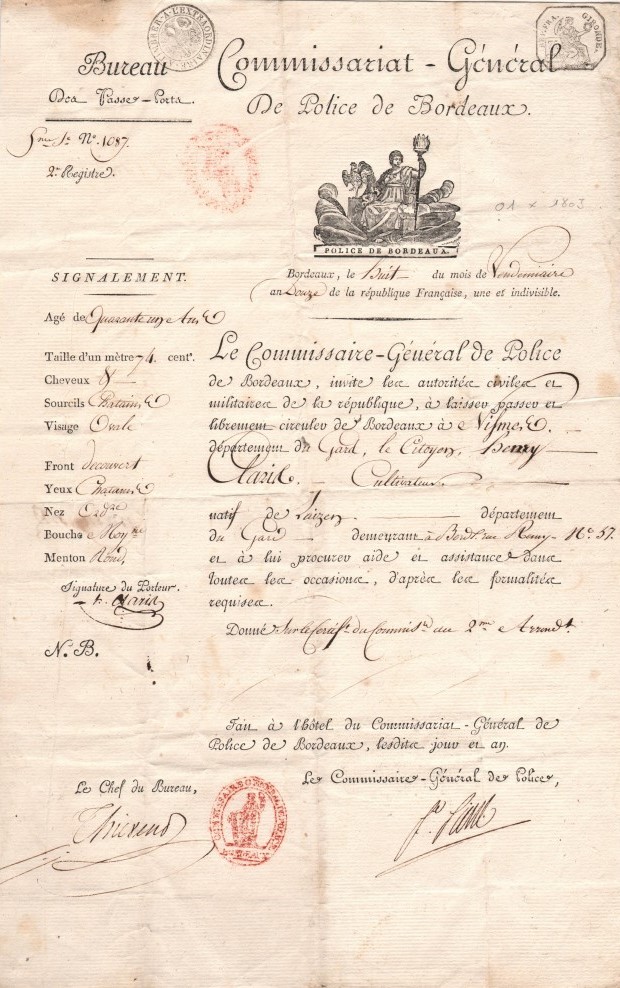 TIMBRE A L'EXTRAORDINAIRE
RÉP. FRA.
GIRONDE.
Bureau
Des Passe-Ports.
Commissariat-Général
De Police de Bordeaux.
N.º 1087.
2.e Registre.
01 x 1803
POLICE DE BORDEAUX.
Bordeaux, le huit du mois de Vendemiaire
an Douze de la république Française, une et indivisible.
SIGNALEMENT.
Agé de Quarante un Ans
Taille d'un mètre 74 cent.s
Cheveux &
Sourcils Chatains
Visage Ovale
Front decouvert
Yeux Chatains
Nez Ord.re
Bouche Moy.ne
Menton Rond
Signature du Porteur.
Claris
N. B.
Le Commissaire-Général de Police
de Bordeaux, invite les autorités civiles et
militaires de la république, à laisser passer et
librement circuler de Bordeaux à Nismes.
département du Gard, le Citoyen, Henry
Claris. Cultivateur
natif de département
du Gard demeurant à Bord.x rue Remy N.o 57.
et à lui procurer aide et assistance dans
toutes les occasions, d'après les formalités
requises.
Donné Sur le Certif.t du Commis.re du 2.me Arrond.t
Fait à l'hôtel du Commissariat-Général de
Police de Bordeaux, lesdits jour et an.
Le Chef du Bureau,
Le Commissaire-Général de Police,